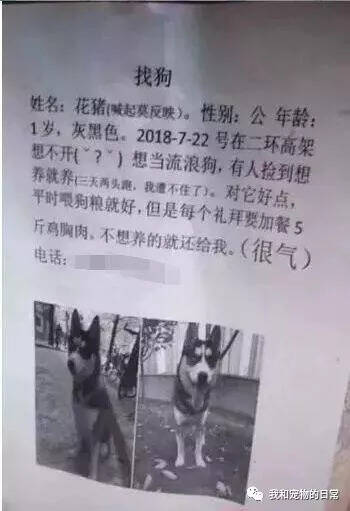 找狗
姓名：花猪(喊起莫反映)。性别：公 年龄：
1岁，灰黑色。2018-7-22 号在二环高架
想不开(ˇ?ˇ) 想当流浪狗，有人捡到想
养就养(三天两头跑，我遭不住了)。对它好点，
平时喂狗粮就好，但是每个礼拜要加餐 5
斤鸡胸肉。不想养的就还给我。(很气)
电话：
我和宠物的日常